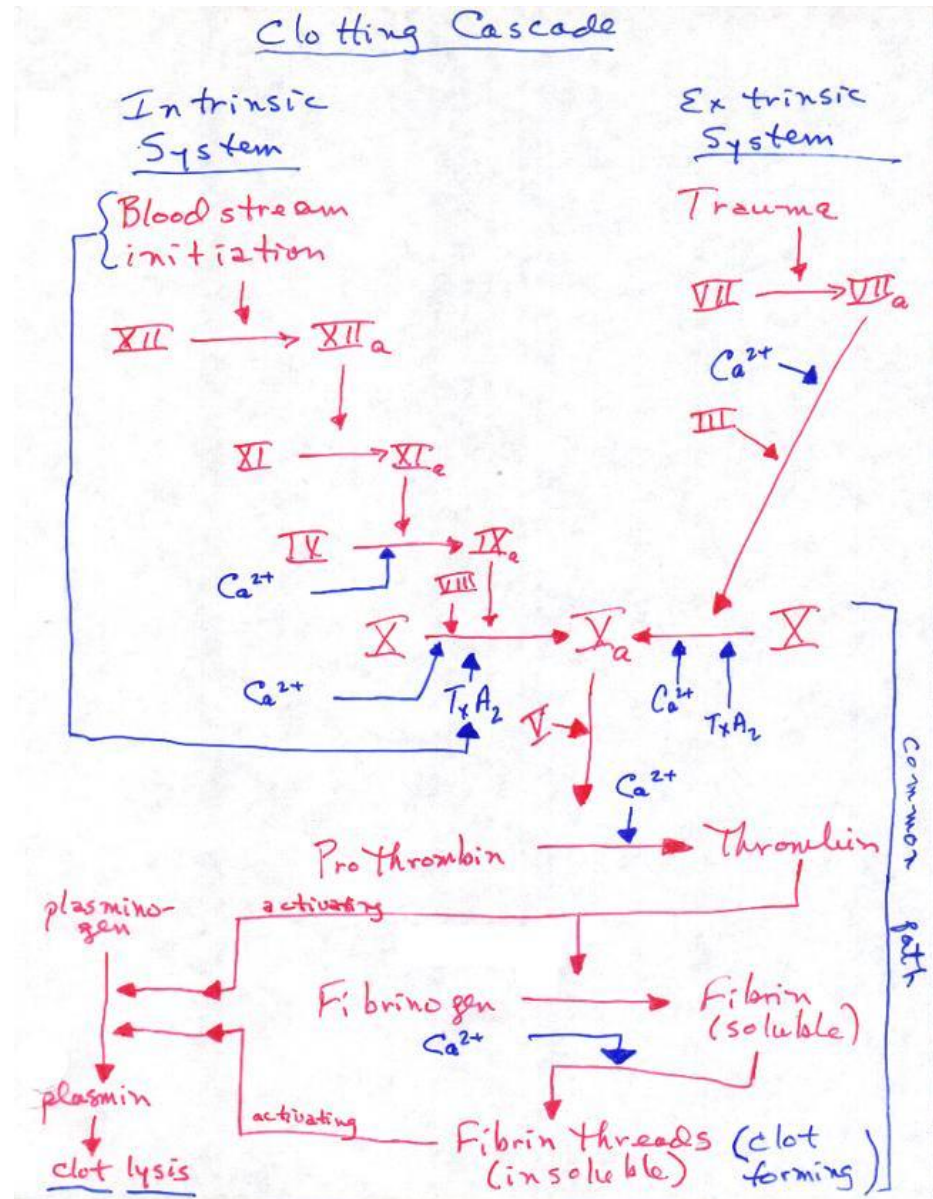 Clotting Cascade
Intrinsic
System
Extrinsic
System
Blood stream
initiation
Trauma
VII
VIIa
XII
XIIa
Ca2+
III
XI
XIa
IX
IXa
Ca2+
VIII
X
Xa
X
Ca2+
TxA2
Ca2+
TxA2
V
Ca2+
Prothrombin
Thrombin
common path
plasmino-
gen
activating
Fibrinogen
Fibrin
(soluble)
Ca2+
plasmin
activating
Fibrin threads (clot
(insoluble) forming)
clot lysis